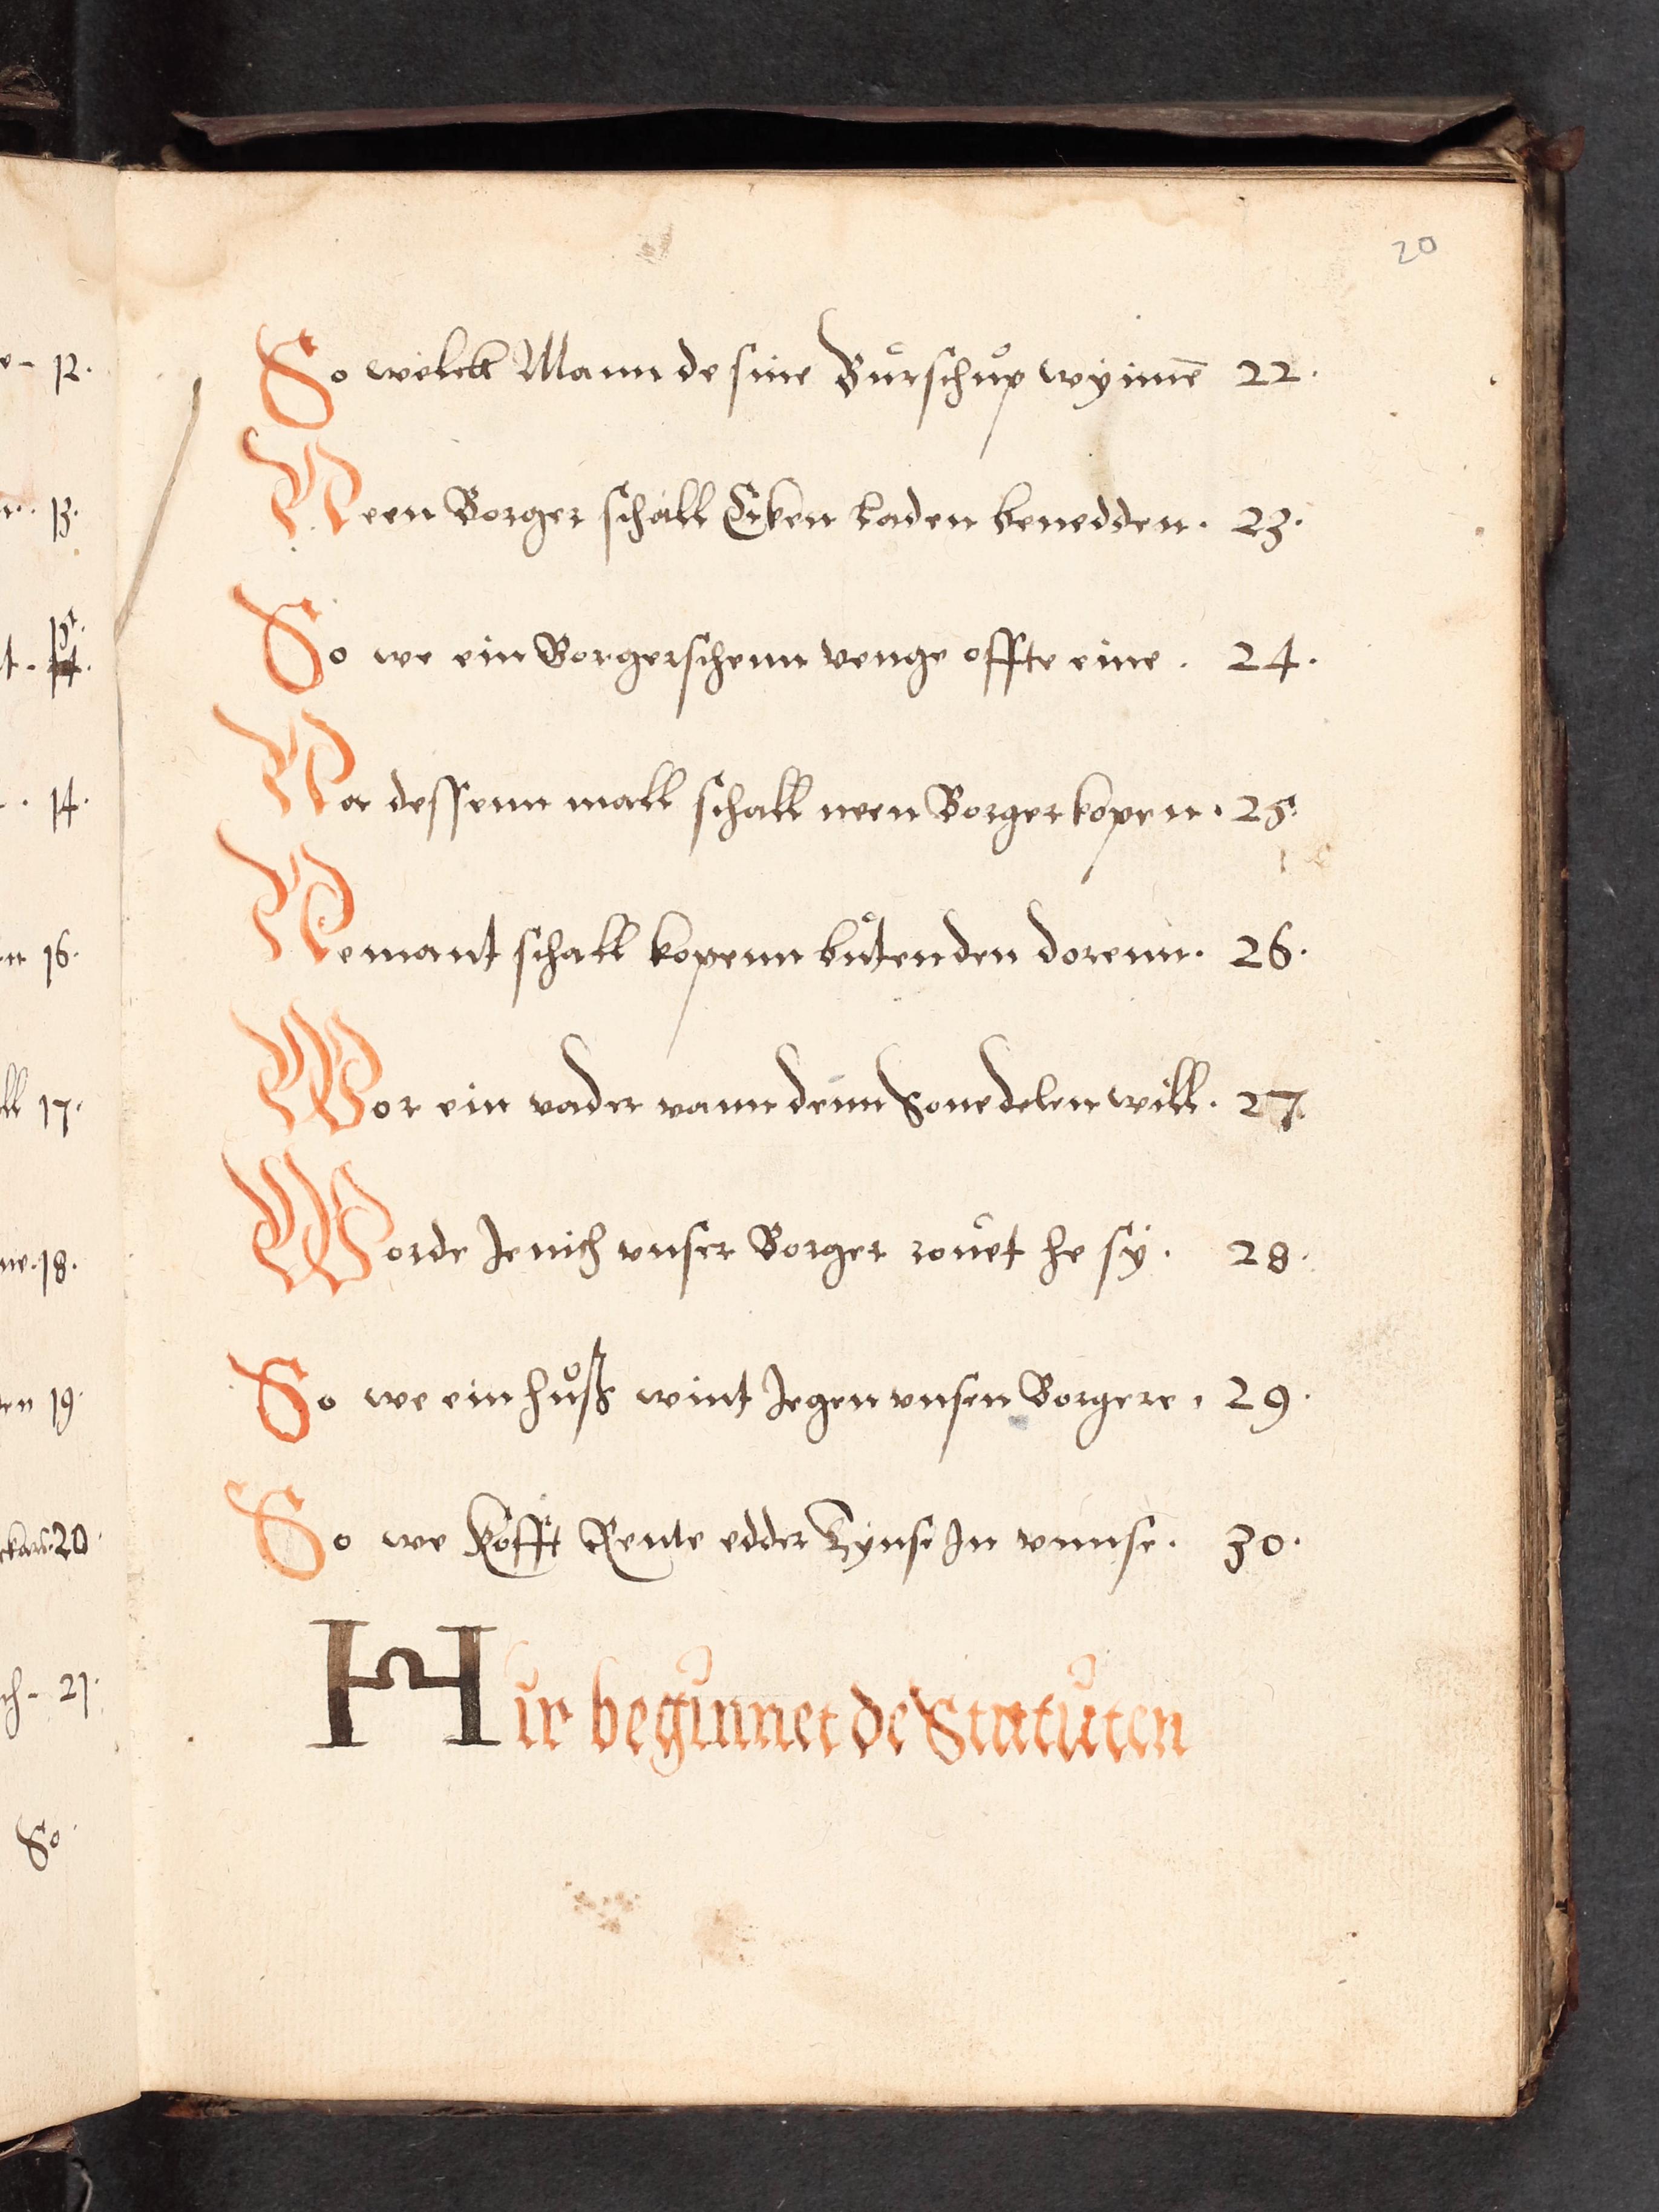 20
So welck Mann de sine Bůrschůp wyimē 22.
Neen Borger schall Eken laden benedden. 23.
So we ein Borgerschenn venge offte eine. 24.
Na dessenn mall schall neen Borger kopen. 25.
Nemant schall kopenn bůtenden dorenn. 26.
Wor ein vader vann denn Sone delen will. 27.
Worde Jenich vnser Borger rouet he sy. 28.
So we ein hůß wint Jegen vnsen Borgere. 29.
So we kofft Rente edder Tynse In vnnse. 30.
Hir beginnet de Statuten
12.
13.
14.
16.
17.
18.
19.
20.
21.
So